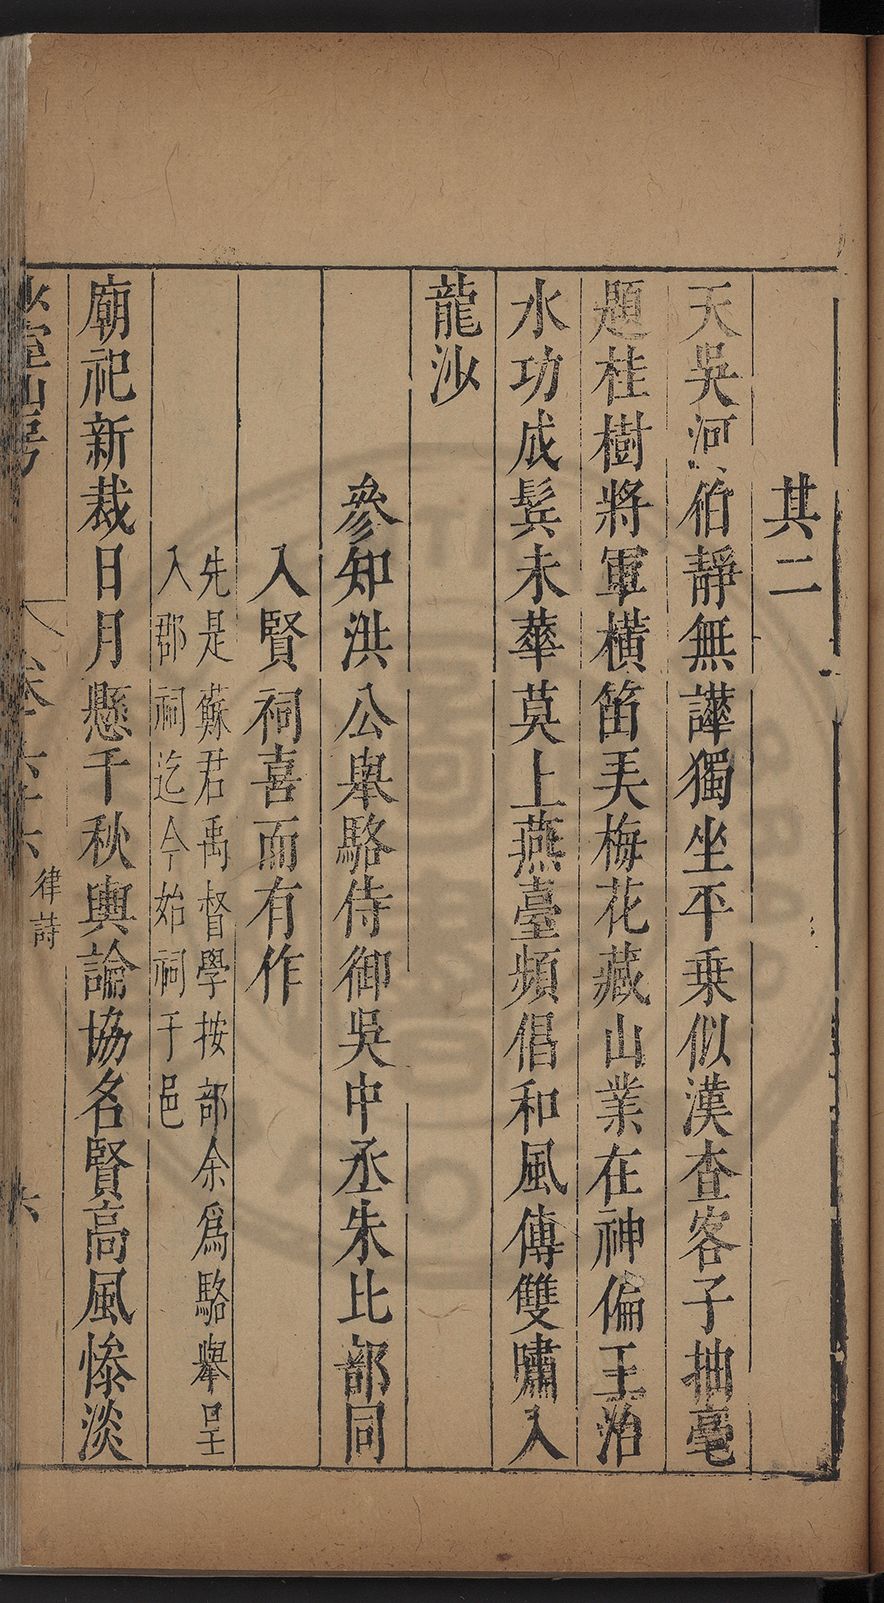 其二
天吳河伯靜無譁獨坐平乗似漢查客子抽毫
題桂樹將軍橫笛弄梅花藏山業在神偏王治
水功成鬂未華莫上燕臺頻倡和風傳雙嘯入
龍沙
參知洪公舉駱侍御吳中丞朱比部同
入賢祠喜而有作
先是蘇君禹督學按部余爲駱舉呈
入郡祠迄今始祠于邑
廟祀新裁日月懸千秋輿論協名賢高風慘淡
少室山房
卷六十六
律詩
六